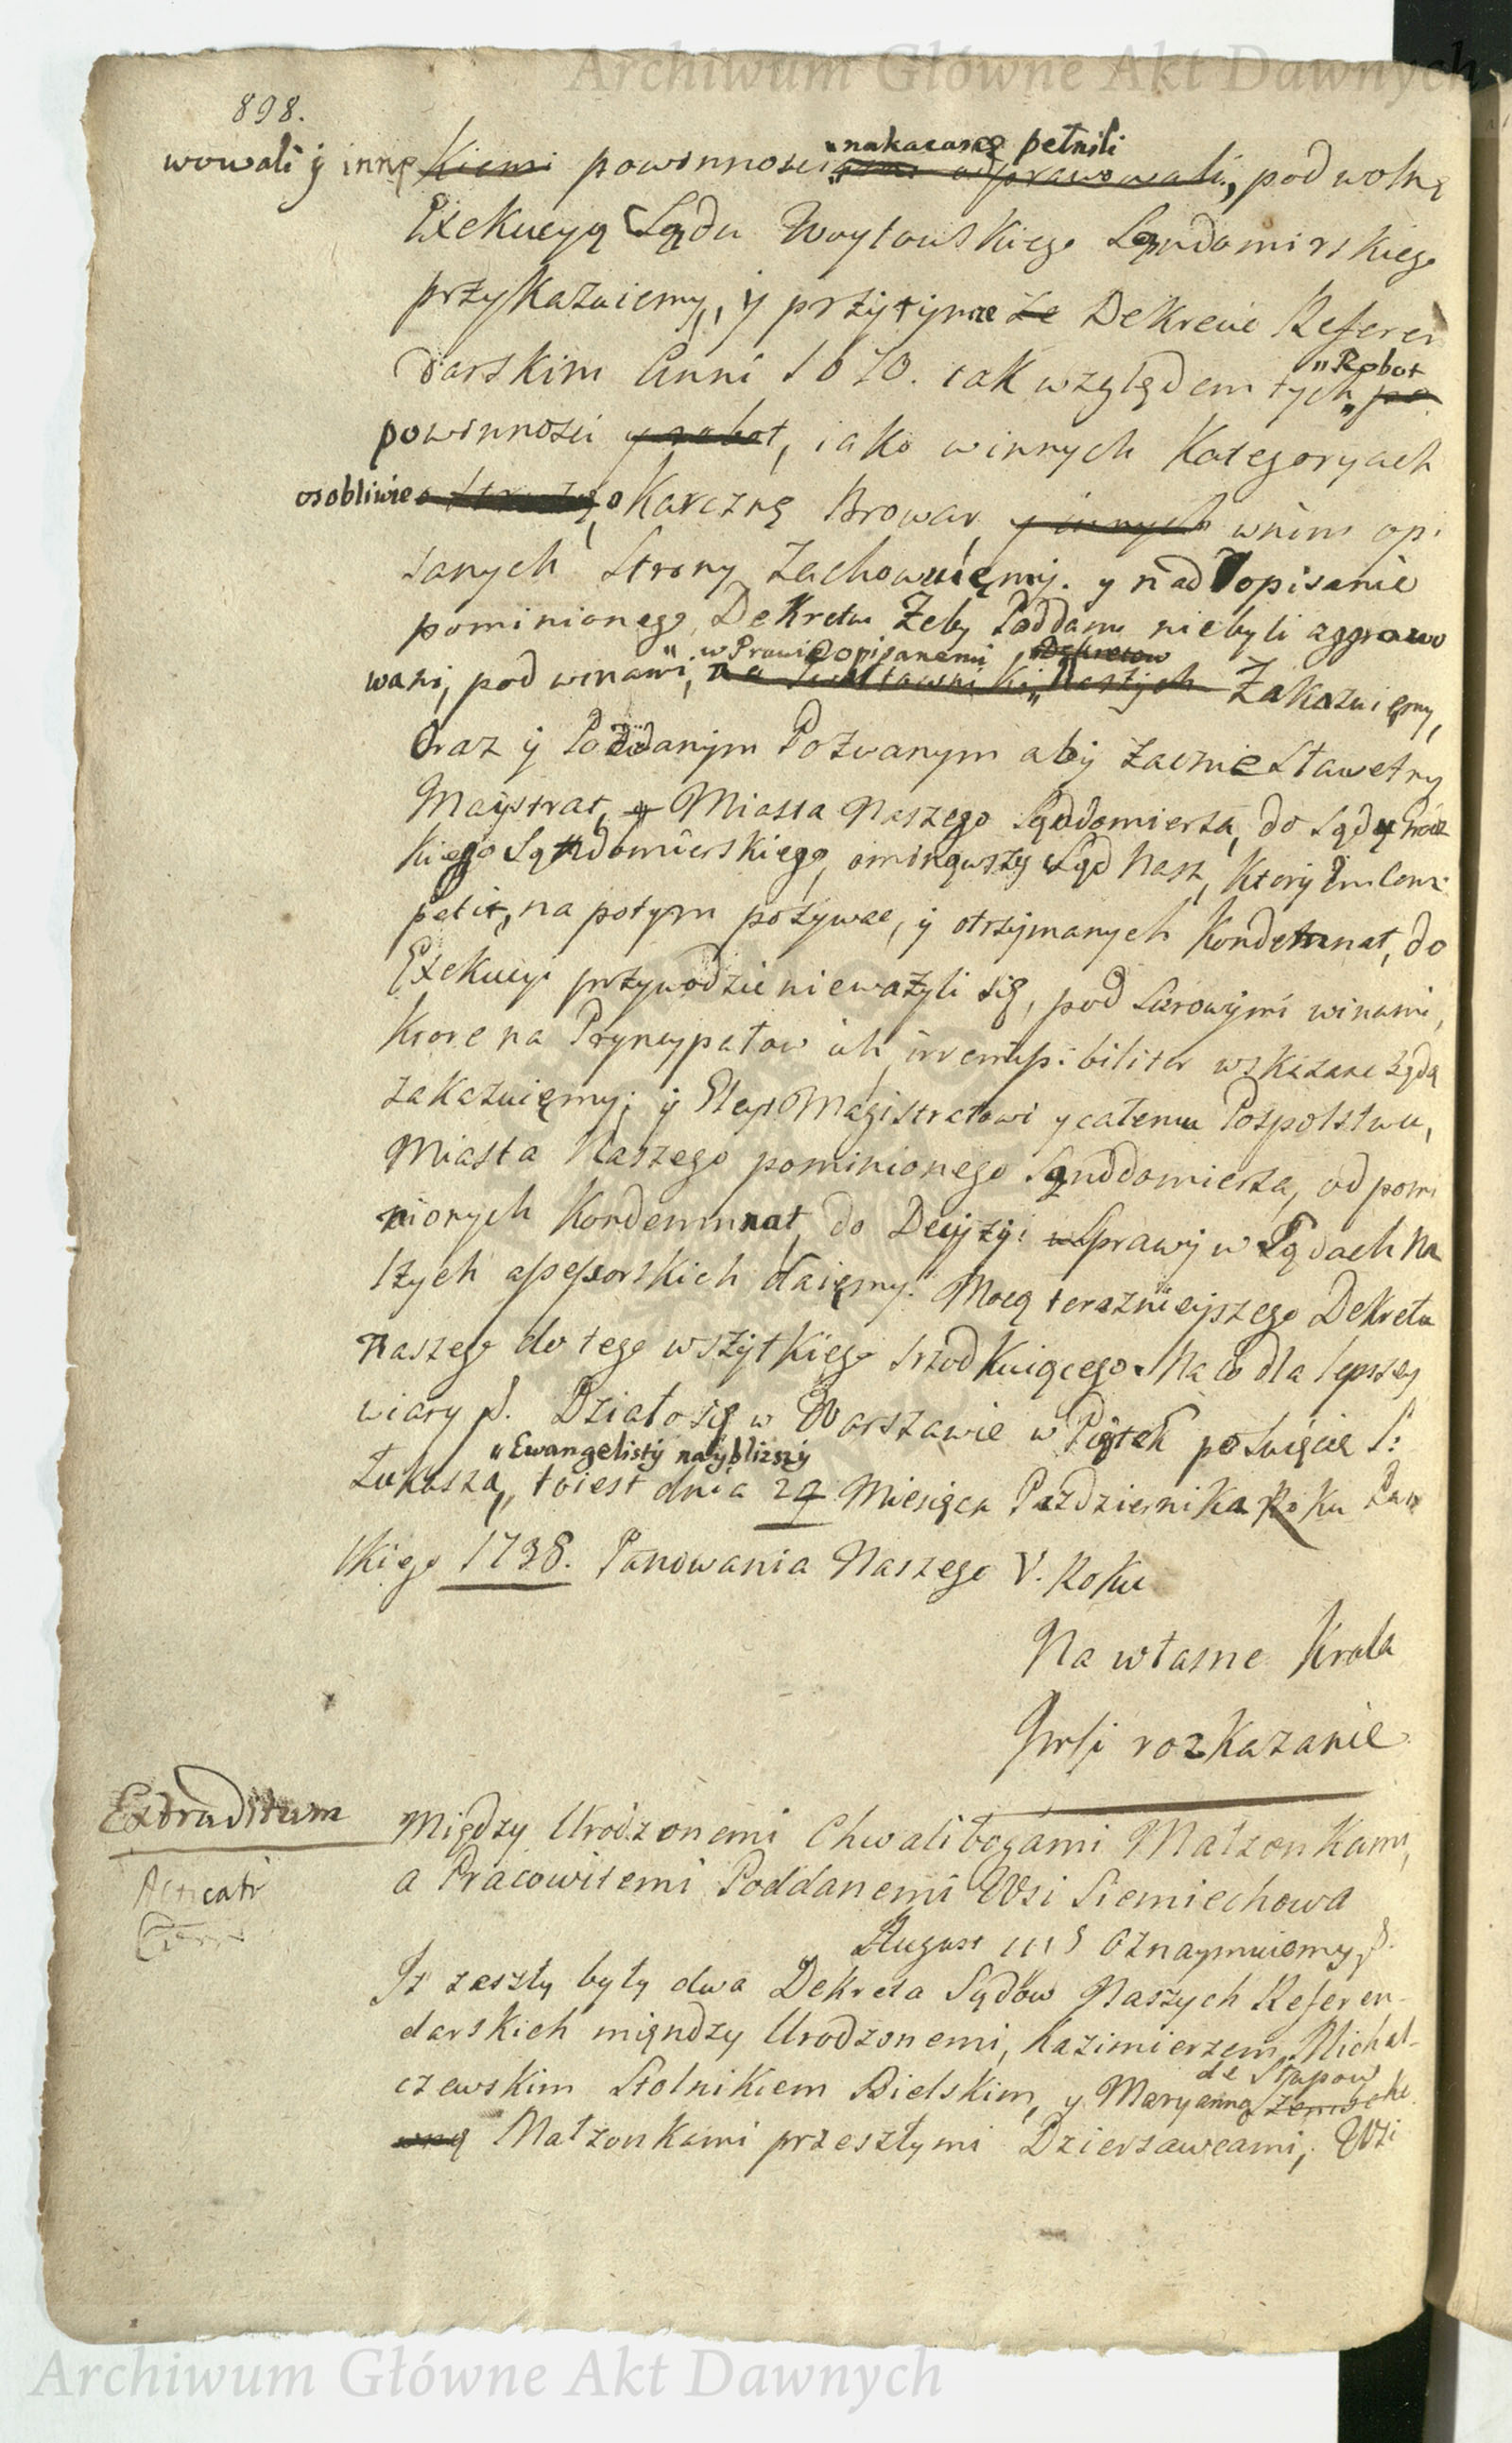 Archiwum Główne Akt Dawnych
898.
wowali ÿ innę kiemi powinnosci nakazanę pełnili odprawowali, pod wolnę
Exekucyą Sądu Woytowskiego Sądomirskiego
przykazuiemy, y przytymże że Dekrecie Referen
darskim Anni 1670. tak względem tych „Robot po
powinnosci y robot, iako winnych Kategoryach
osobliwie o Karczmę Browar, y innych wnim opi
sanych Strony zachowuięmy. y nad opisanie
pominionego Dekretu Zeby Poddani niebyli aggrawo
wani, pod winami, „w Prawie opisanemi Dekretow Naszych Zakazuięmy,
Oraz ÿ Poddanÿm Pozwanym abÿ zacnie Sławetny
Mаÿstrat, Miasta Naszego Sądomierza, do Sądu Grodz
kiego Sądomierskiego, ominąwszy Sąd Nasz, ktorÿ Im Com
petit, na potym pozywac, ÿ otrzÿmanych Kondemnat, do
Exekucyi przywodzic nieważyli się, pod surowÿmi winami,
ktore na Pryncypałow ich irremissibiliter wskazane będą
zakazuięmy; ÿ Magistratowi y całemu Pospolstwu,
Miasta Naszego pominionego Sąndomierza, od pomi
nionych Kondemnat, do Decyzyi Sprawÿ w Sądach Na
szych assessorskich daięmy. Mocą teraznieÿszego Dekretu
naszego do tego wszÿtkiego srzodkuiącego. Na co dla lepszey
wiary p. Działo się w Warszawie w Piątek po Swięcie S:
Łukasza, „Ewangelistÿ nayblizszÿ toiest dnia 24 Miesiąca Pazdziernika Roku Pan
skiego 1738. Panowania Naszego V. Roku
Na własne Krola
Jmsci rozkazanie
Extraditum
Między Urodzonemi Chwalibogami Małzonkami,
a Pracowitemi Poddanemi Wsi Siemiechowa
August III Oznaymuiemy p.
Iż zeszły były dwa Dekreta Sądow Naszych Referen-
darskich mięndzy Urodzonemi, Kazimierzem Michal-
czewskim Stolnikiem Bielskim, y Maryanną de Stupow
wną Małzonkami przeszłymi Dzierzawcami, Wsi
Archiwum Główne Akt Dawnych